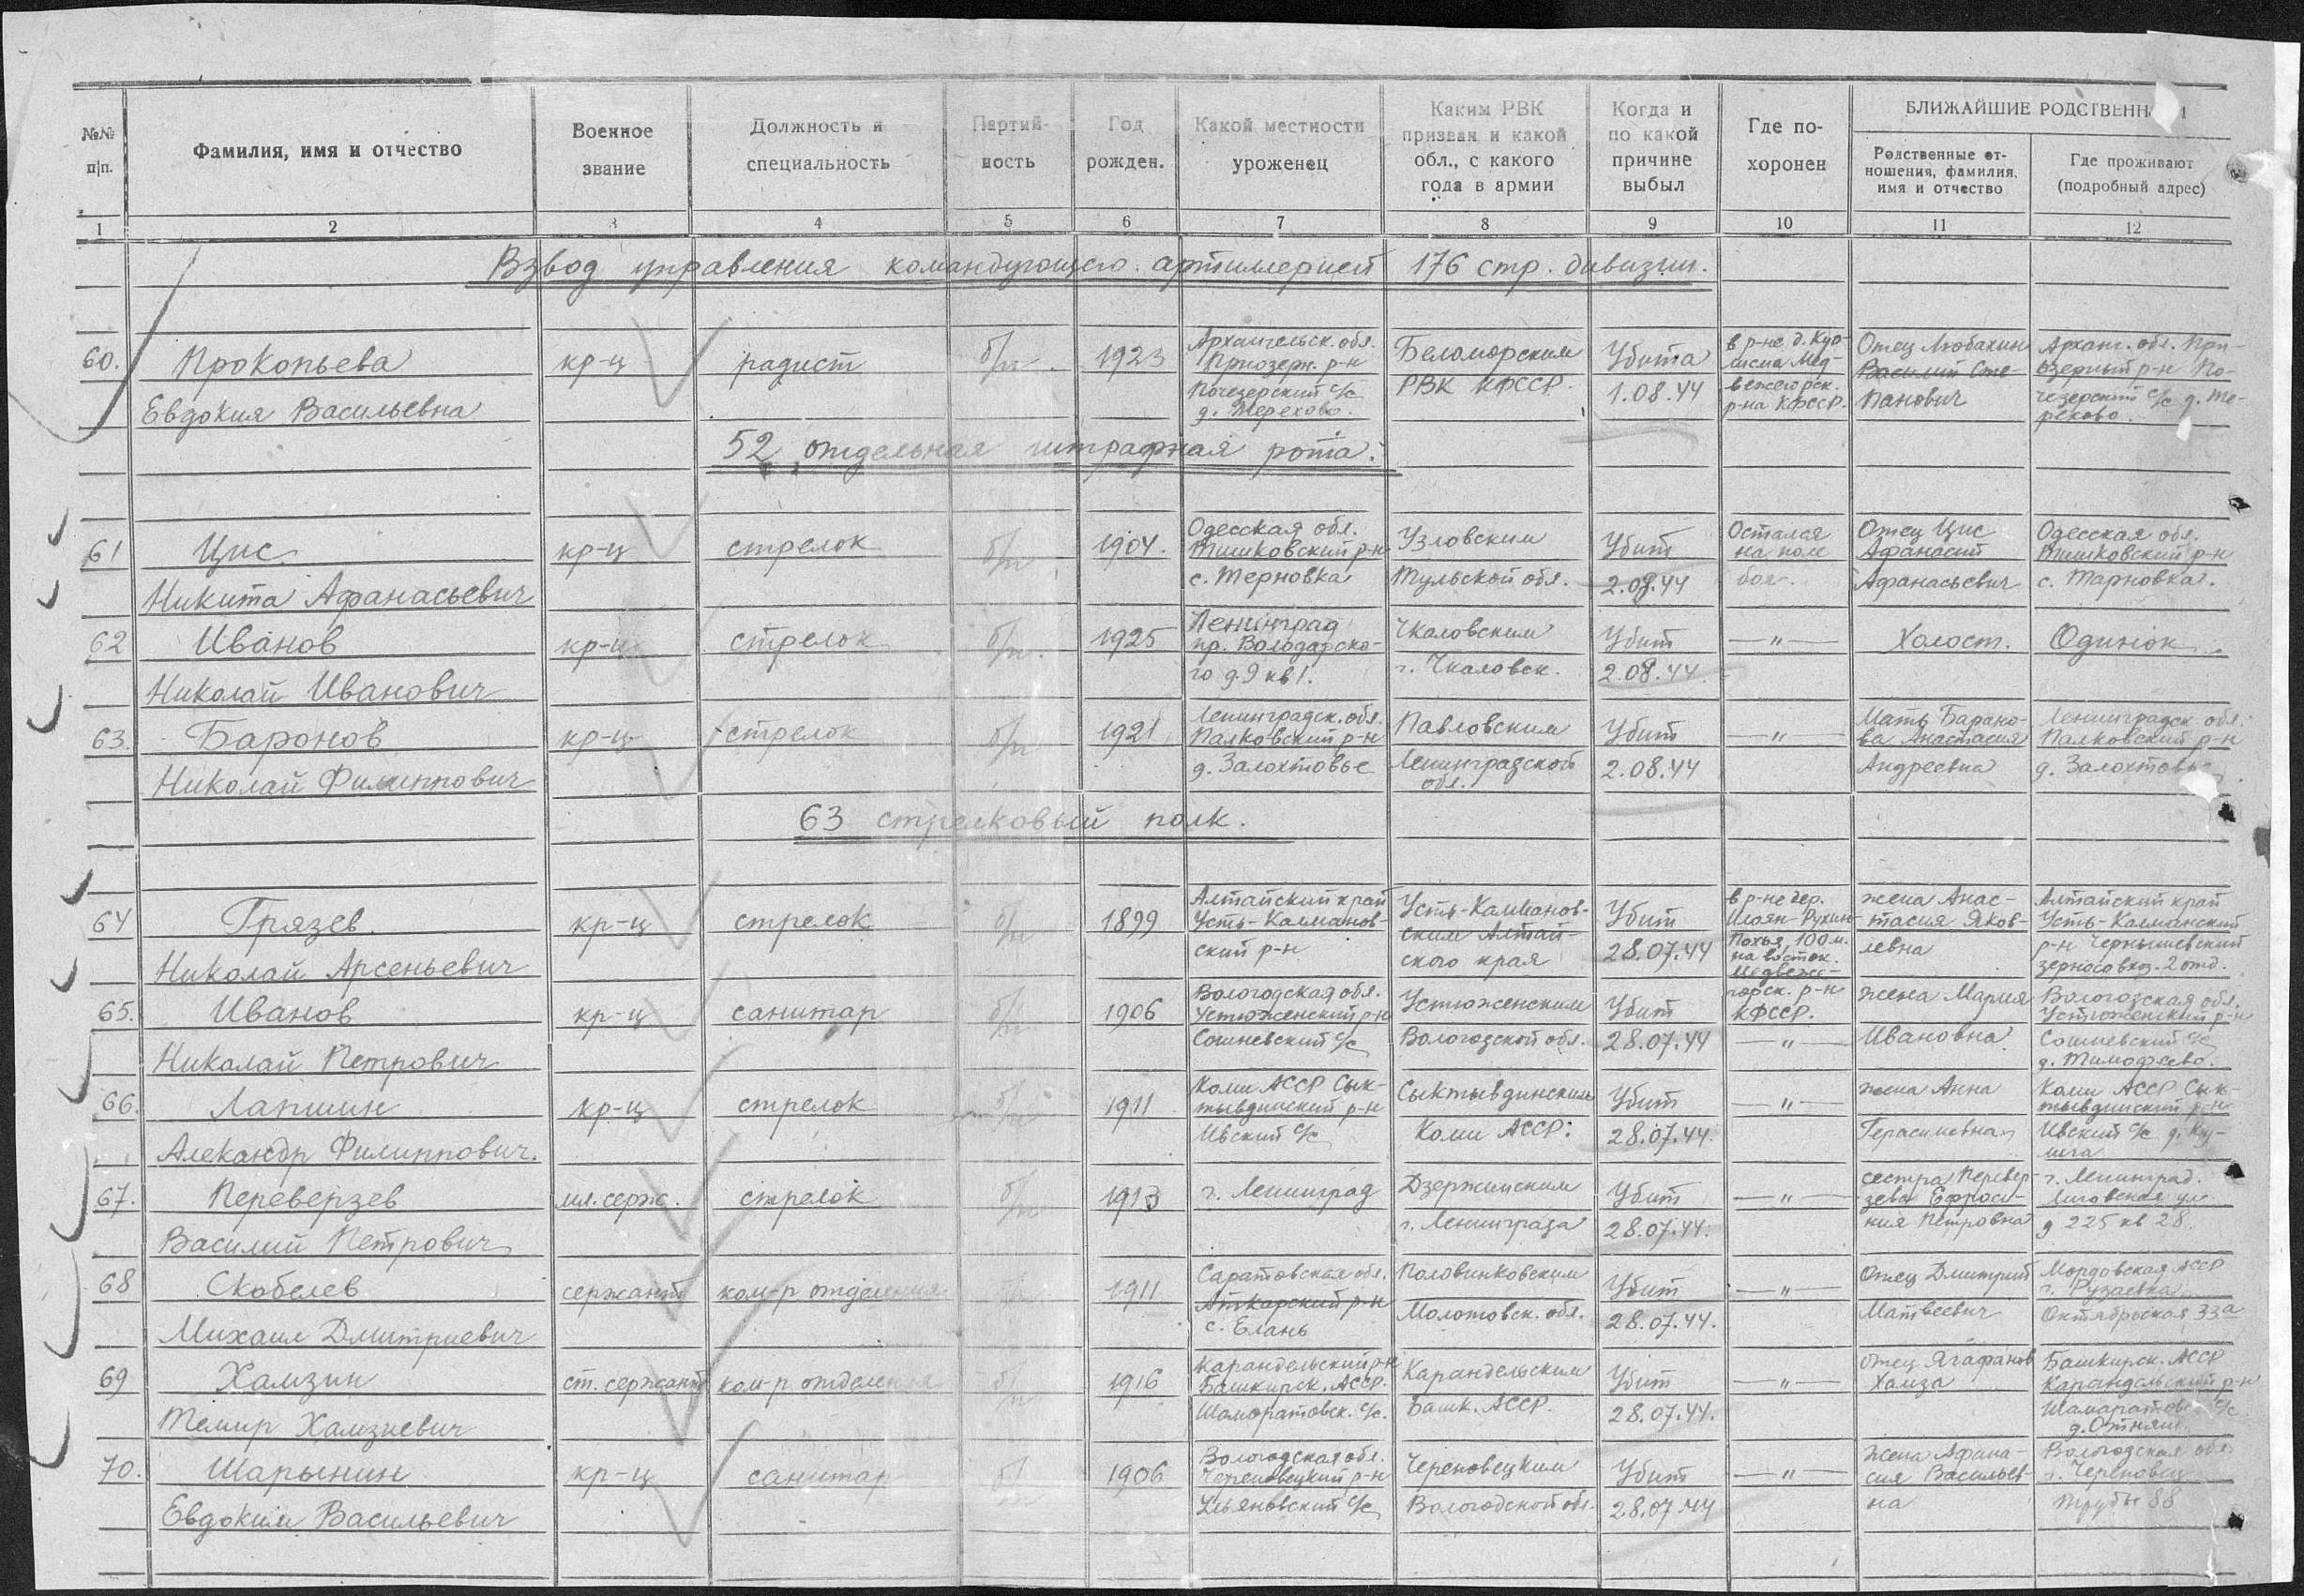 №№ п|п.
Фамилия, имя и отчество
Военное звание
Должность и специальность
Партий-ность
Год рожден.
Какой местности уроженец
Каким РВК призван и какой обл., с какого года в армии
Когда и по какой причине выбыл
Где по-хоронен
БЛИЖАЙШИЕ РОДСТВЕНН
Родственные от-ношения, фамилия, имя и отчество
Где проживают (подробный адрес)
1 2 3 4 5 6 7 8 9 10 11 12
Взвод управления командующего артиллерией 176 стр. дивизии.
60. Прокопьева кр-ц радист б/п 1923 Архангельск. обл. Беломорским Убита в р-не д. Куо- Отец Любахин Арханг. обл. При-
Приозерн. р-н Мед- Василий Сте- озерный р-н По-
Евдокия Васильевна Почезерский с/с РВК КФССР. 1.08.44 вежегорск. панович чезерский с/с д. Те-
д. Терехово. р-на КФССР. рехово.
52 отдельная штрафная рота.
61 Цис кр-ц стрелок б/п 1904. Одесская обл. Узловским Убит Остался Отец Цис Одесская обл.
Тишковский р-н на поле Афанасий Тишковский р-н
Никита Афанасьевич с. Терновка Тульской обл. 2.08.44 боя. Афанасьевич с. Тарновка.
62 Иванов кр-ц стрелок б/п. 1925 Ленинград Чкаловским Убит —"— Холост. Одинок.
пр. Володарско-
Николай Иванович го д.9 кв 1. г. Чкаловск. 2.08.44.
63. Баронов кр-ц стрелок б/п 1921 Ленинградск. обл. Павловским Убит —"— Мать Барано- Ленинградск обл.
Палковский р-н ва Анастасия Палковский р-н
Николай Филиппович д. Залохтовье Ленинградской 2.08.44 Андреевна д. Залохтовье
обл.
63 стрелковый полк.
64 Грязев кр-ц стрелок б/п 1899 Алтайский край Усть-Калманов- Убит в р-не дер. жена Анас- Алтайский край
Усть-Калманов- ским Алтай- тасия Яков- Усть-Калманский
Николай Арсеньевич ский р-н ского края 28.07.44 Похья, 100 м. левна р-н Чернышевский
на восток. зерносовхоз. 2 отд.
Медвеже-
65. Иванов кр-ц санитар б/п 1906 Вологодская обл. Устюженским Убит горск. р-н жена Мария Вологодская обл.
Устюженский р-н КФССР. Устюженский р-н
Николай Петрович Сошневский с/с Вологодской обл. 28.07.44 —"— Ивановна Сошневский с/с
д. Тимофеево.
66. Лапшин кр-ц стрелок б/п 1911 Коми АССР Сык- Сыктывдинским Убит —"— жена Анна Коми АССР Сык-
тывдинский р-н тывдинский р-н
Алекандр Филиппович. Ивский с/с Коми АССР. 28.07.44. Герасимовна Ивский с/с
67. Переверзев мл. серж. стрелок б/п 1913 г. Ленинград Дзержинским Убит —"— сестра Перевер- г. Ленинград.
зева Ефроси- Лиговская ул
Василий Петрович г. Ленинграда 28.07.44. ния Петровна д 225 кв 28.
68 Скобелев сержант ком-р отделения б/п 1911 Саратовская обл. Половинковским Убит —"— Отец Дмитрий Мордовская АССР
Аткарский р-н г. Рузаевка
Михаил Дмитриевич с. Елань Молотовск. обл. 28.07.44. Матвеевич Октябрьская 33а
69 Хамзин ст. сержант ком-р отделения б/п 1916 Карандельский р-н Карандельским Убит —"— отец Ягафанов Башкирск. АССР
Башкирск. АССР. Хамза Карандельский р-н
Темир Хамзиевич Шамаратовск. с/с. Башк. АССР. 28.07.44. Шамаратовс с/с
70. Шарынин кр-ц санитар б/ 1906 Вологодская обл. Череповецким Убит —"— Жена Афана- Вологодская обл
Череповецкий р-н сия Васильев- г. Череповец
Евдоким Васильевич Ульяновский с/с Вологодской обл. 28.07.44 на Трубы 88